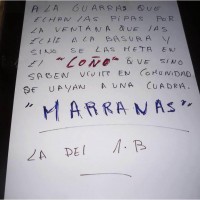 A LA GUARDAS QUE
ECHAN LAS PIPAS POR
LA VENTANA QUE LAS
ECHE A LA BASURA Y
SINO SE LAS META EN
EL "COÑO" QUE SINO
SABEN VIVIR EN COMUNIDAD
SE VAYAN A UNA CUADRA.
"MARRANAS"
LA DEL 1-B